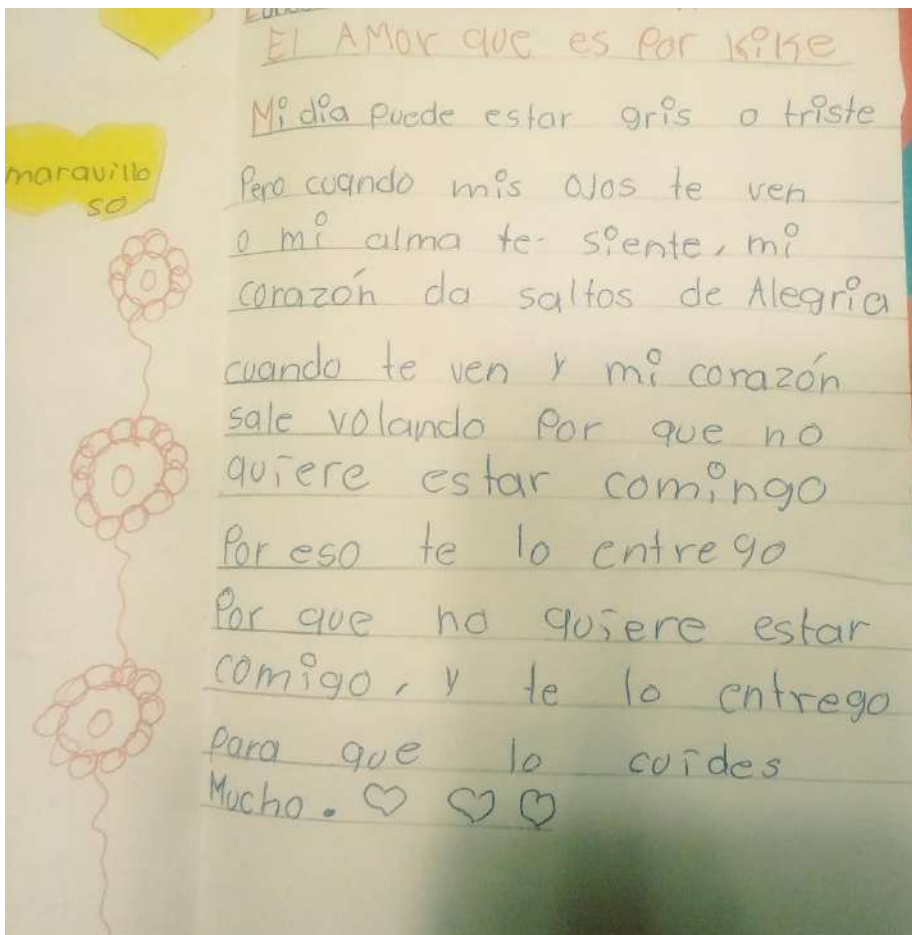 El AMor que es Por Kike
Mi día Puede estar gris o triste
maravillo
so
Pero cuando mis OJos te ven
o mi alma te- siente, mi
corazón da saltos de Alegria
cuando te ven y mi corazón
sale volando Por que no
quiere estar comingo
Por eso te lo entrego
Por que no quiere estar
comigo, y te lo entrego
Para que lo cuides
Mucho. ♡ ♡ ♡